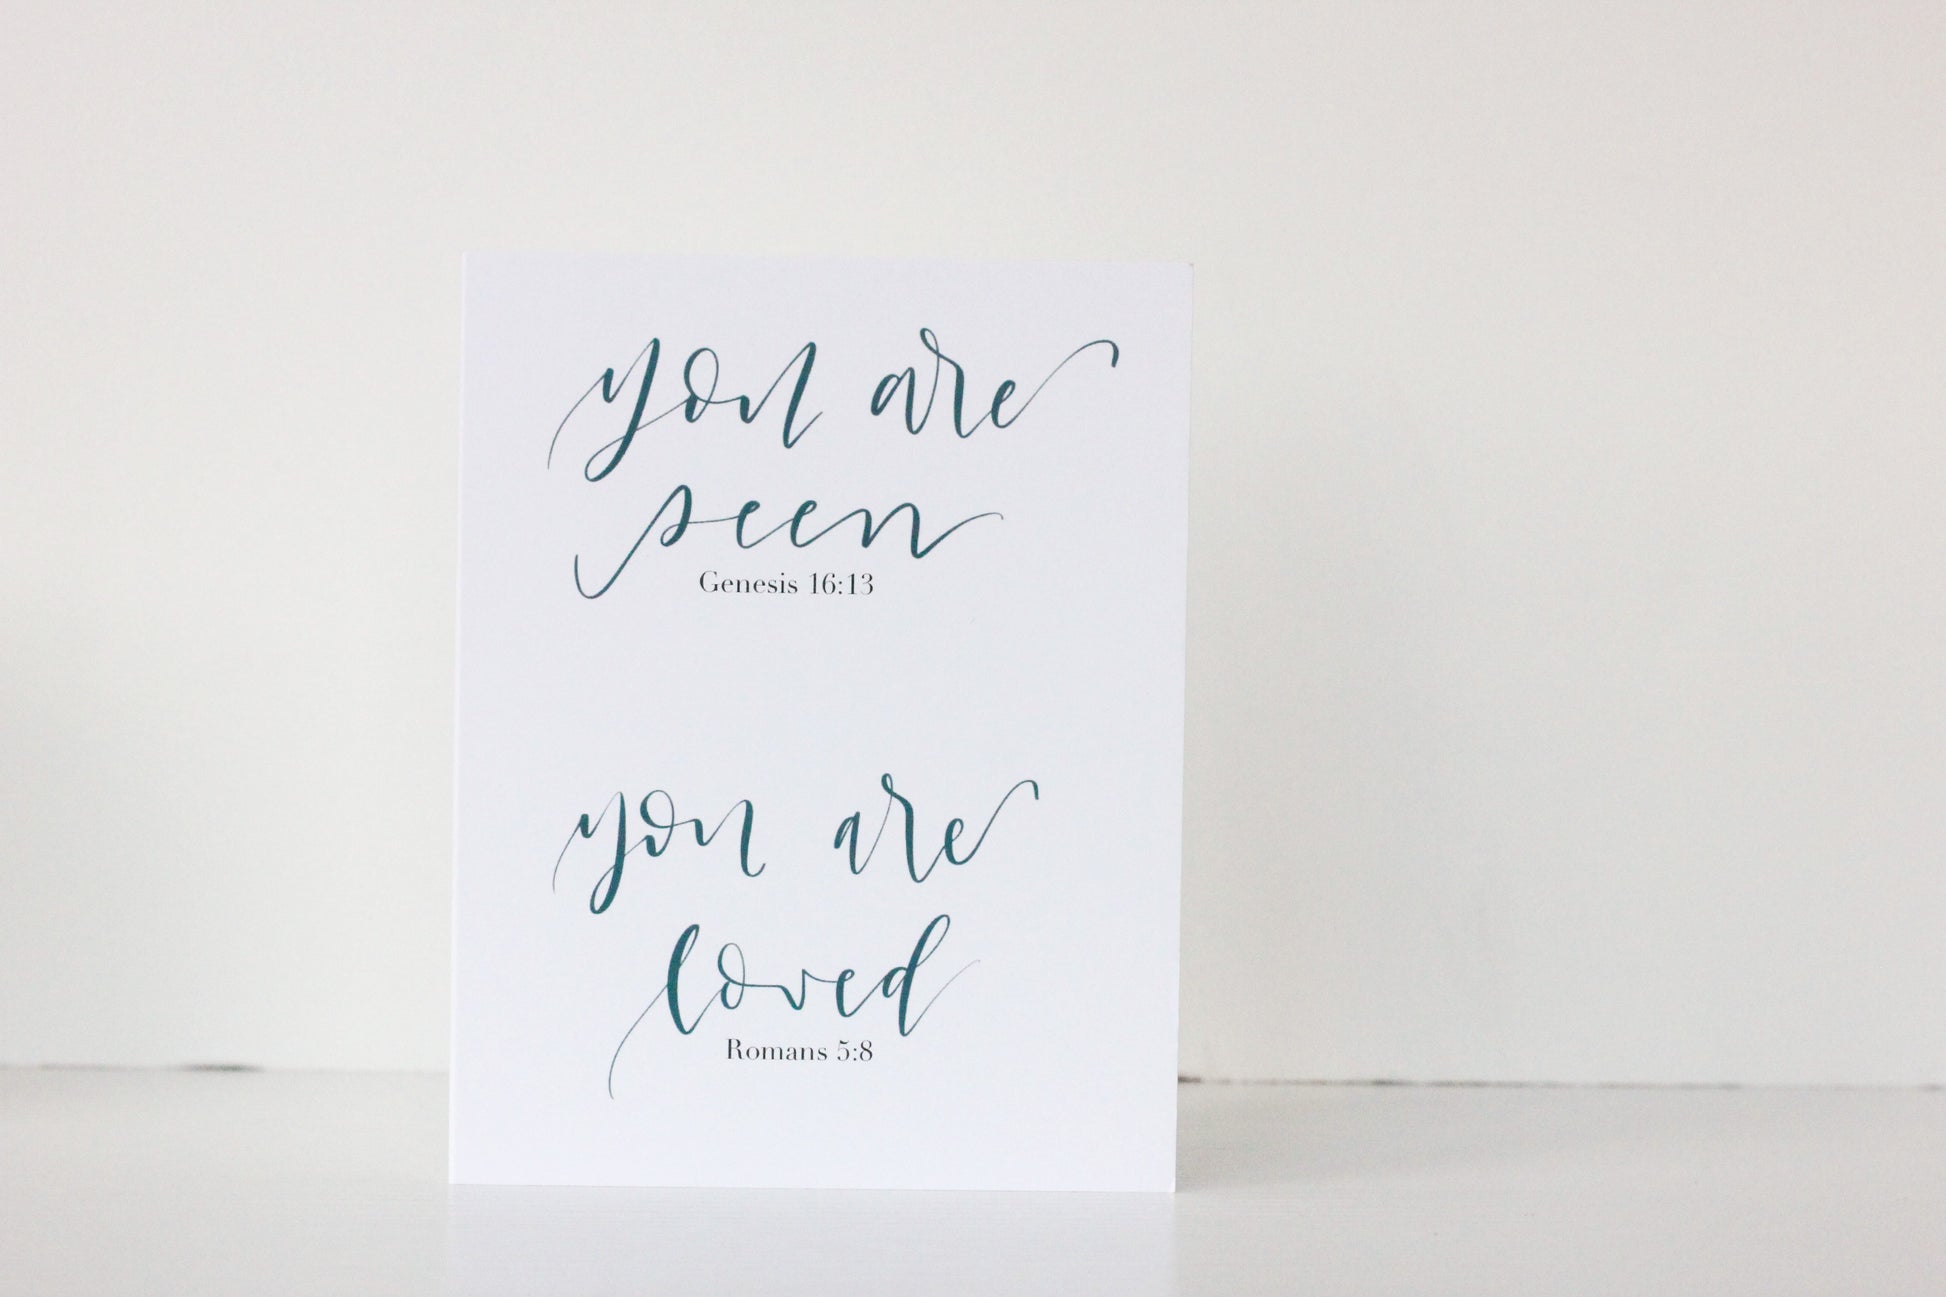 you are
seen
Genesis 16:13
you are
loved
Romans 5:8